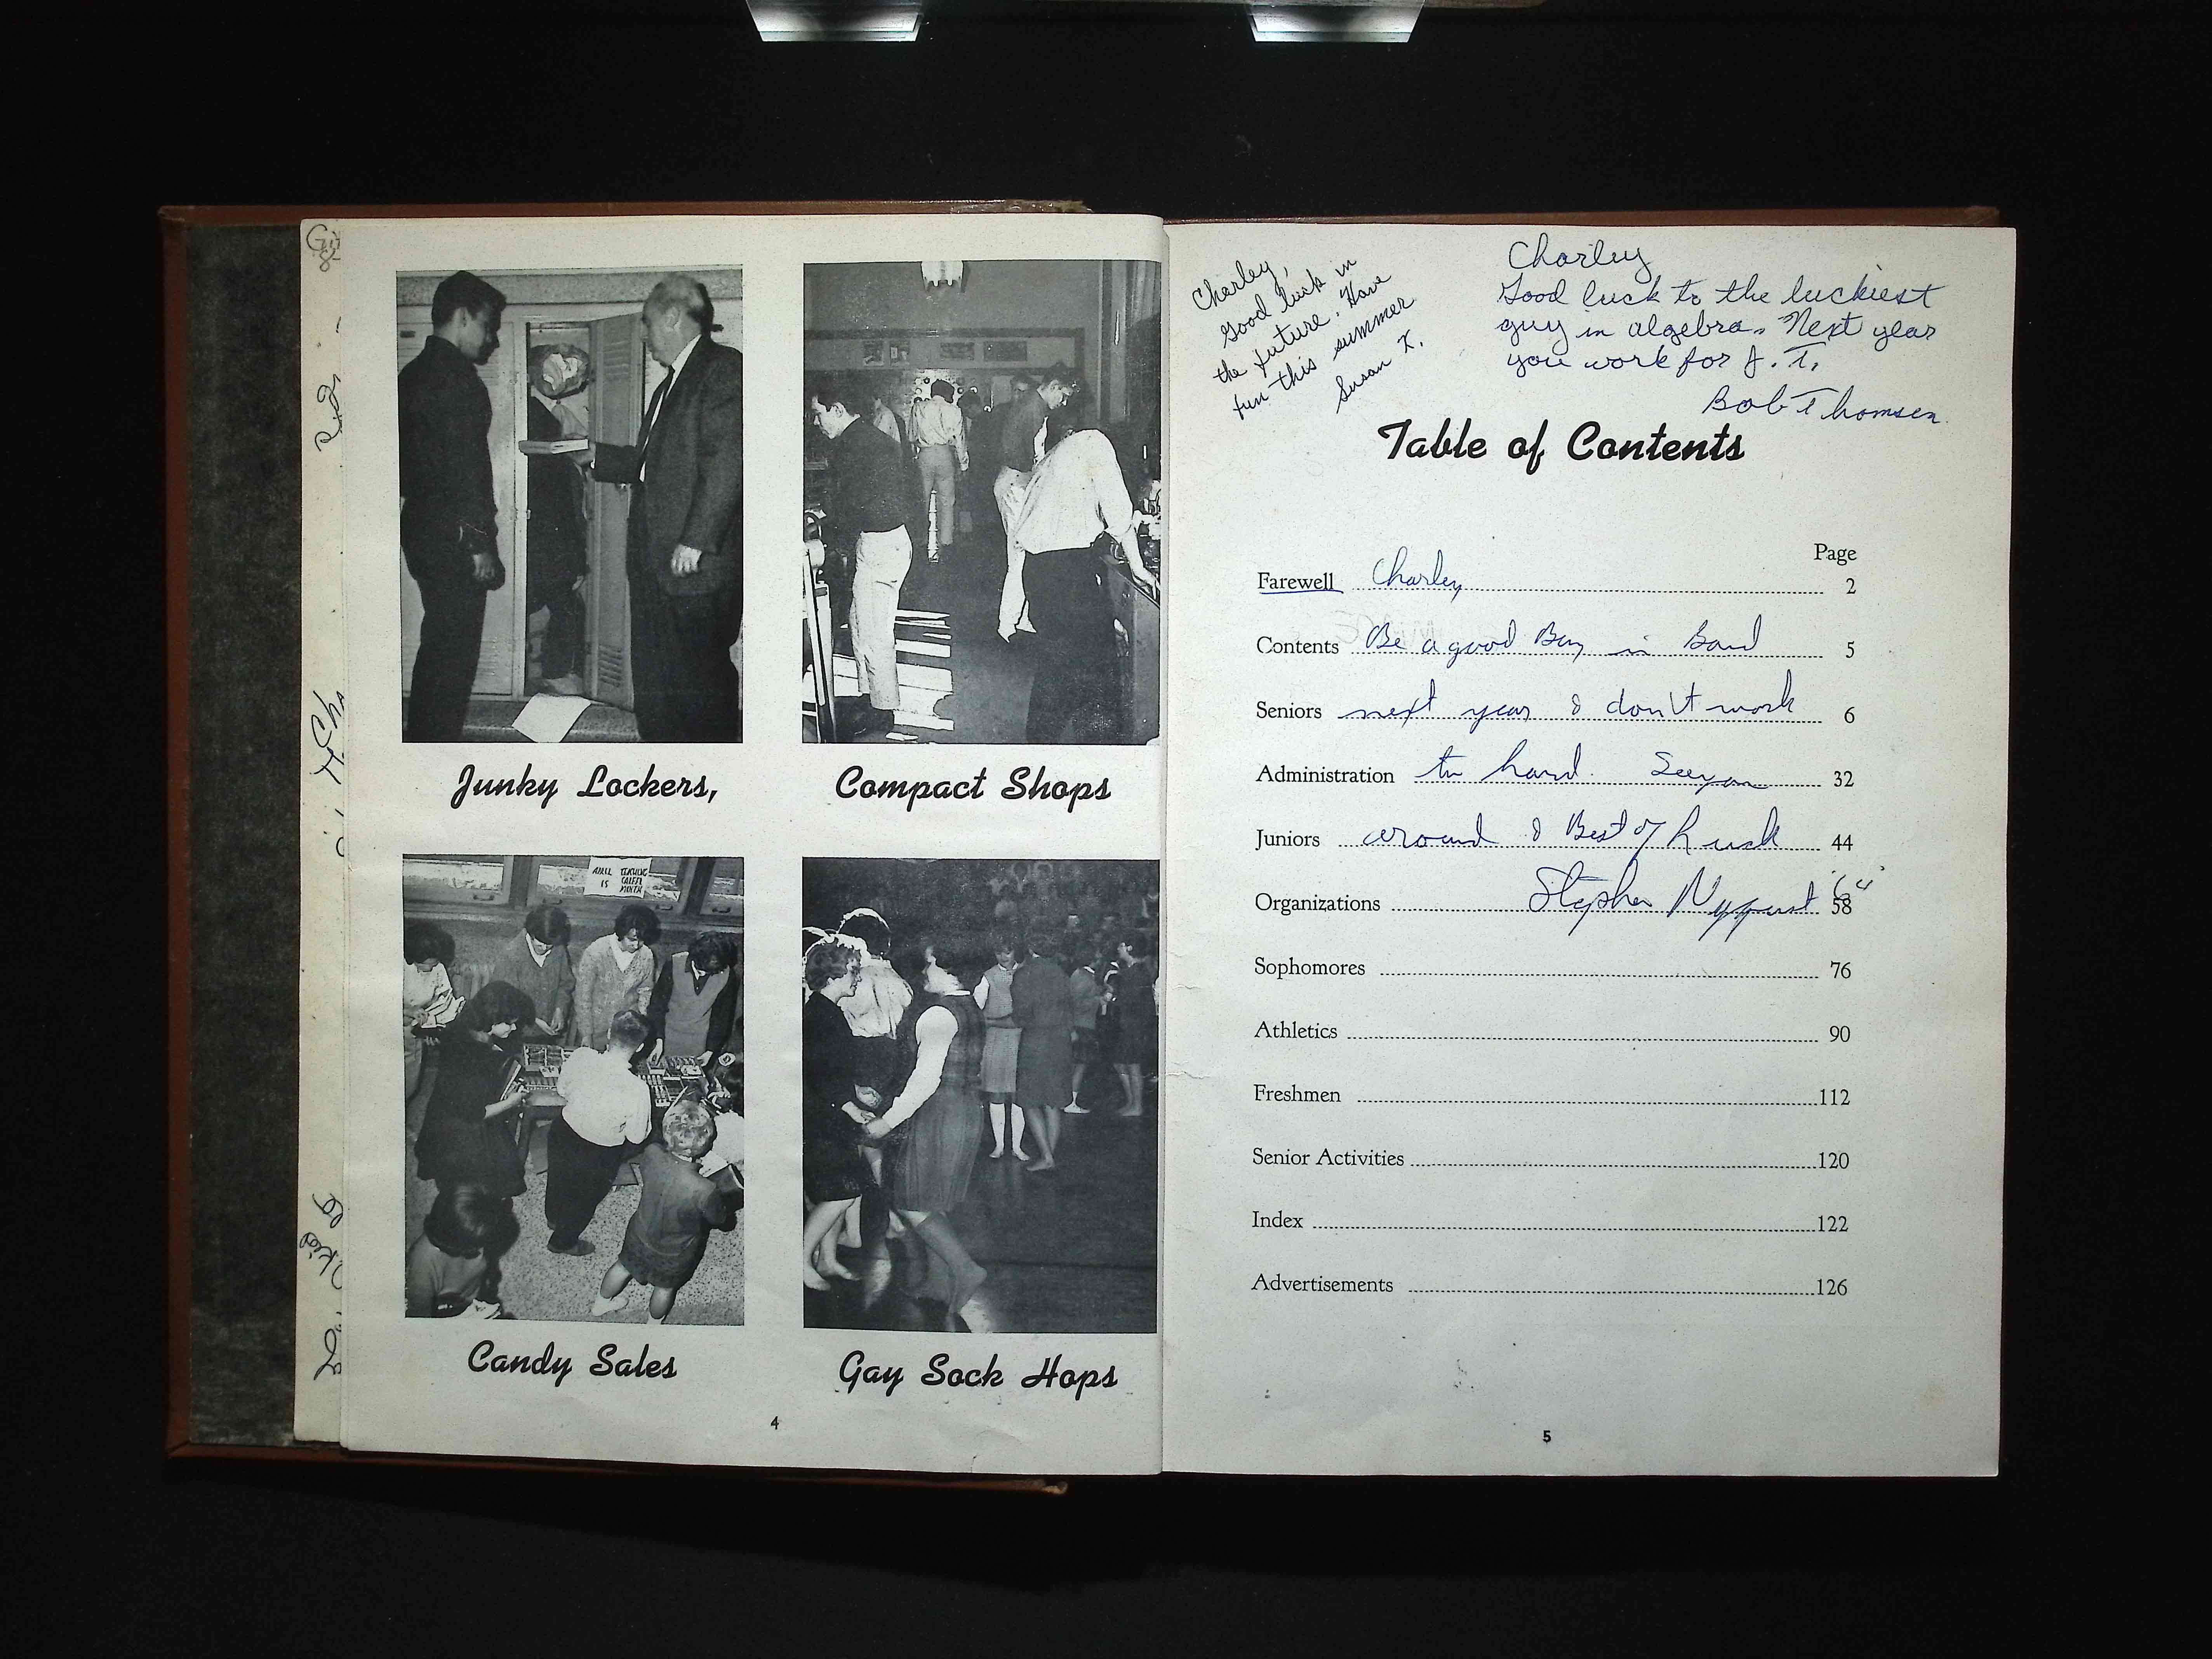 APRIL IS TEACHING CAREER MONTH
Junky Lockers,
Compact Shops
Candy Sales
Gay Sock Hops
4
Charley,
Good luck in
the future. Have
fun this summer
Susan K.
Charley
Good luck to the luckiest
guy in algebra. Next year
you work for J. T.
Bob Thomsen
Table of Contents
Page
Farewell Charley 2
Contents Be a good Boy in Band 5
Seniors next year & don't work 6
Administration to hard. See you 32
Juniors around & Best of Luck 44
Organizations Stephen "64" 58
Sophomores 76
Athletics 90
Freshmen 112
Senior Activities 120
Index 122
Advertisements 126
5